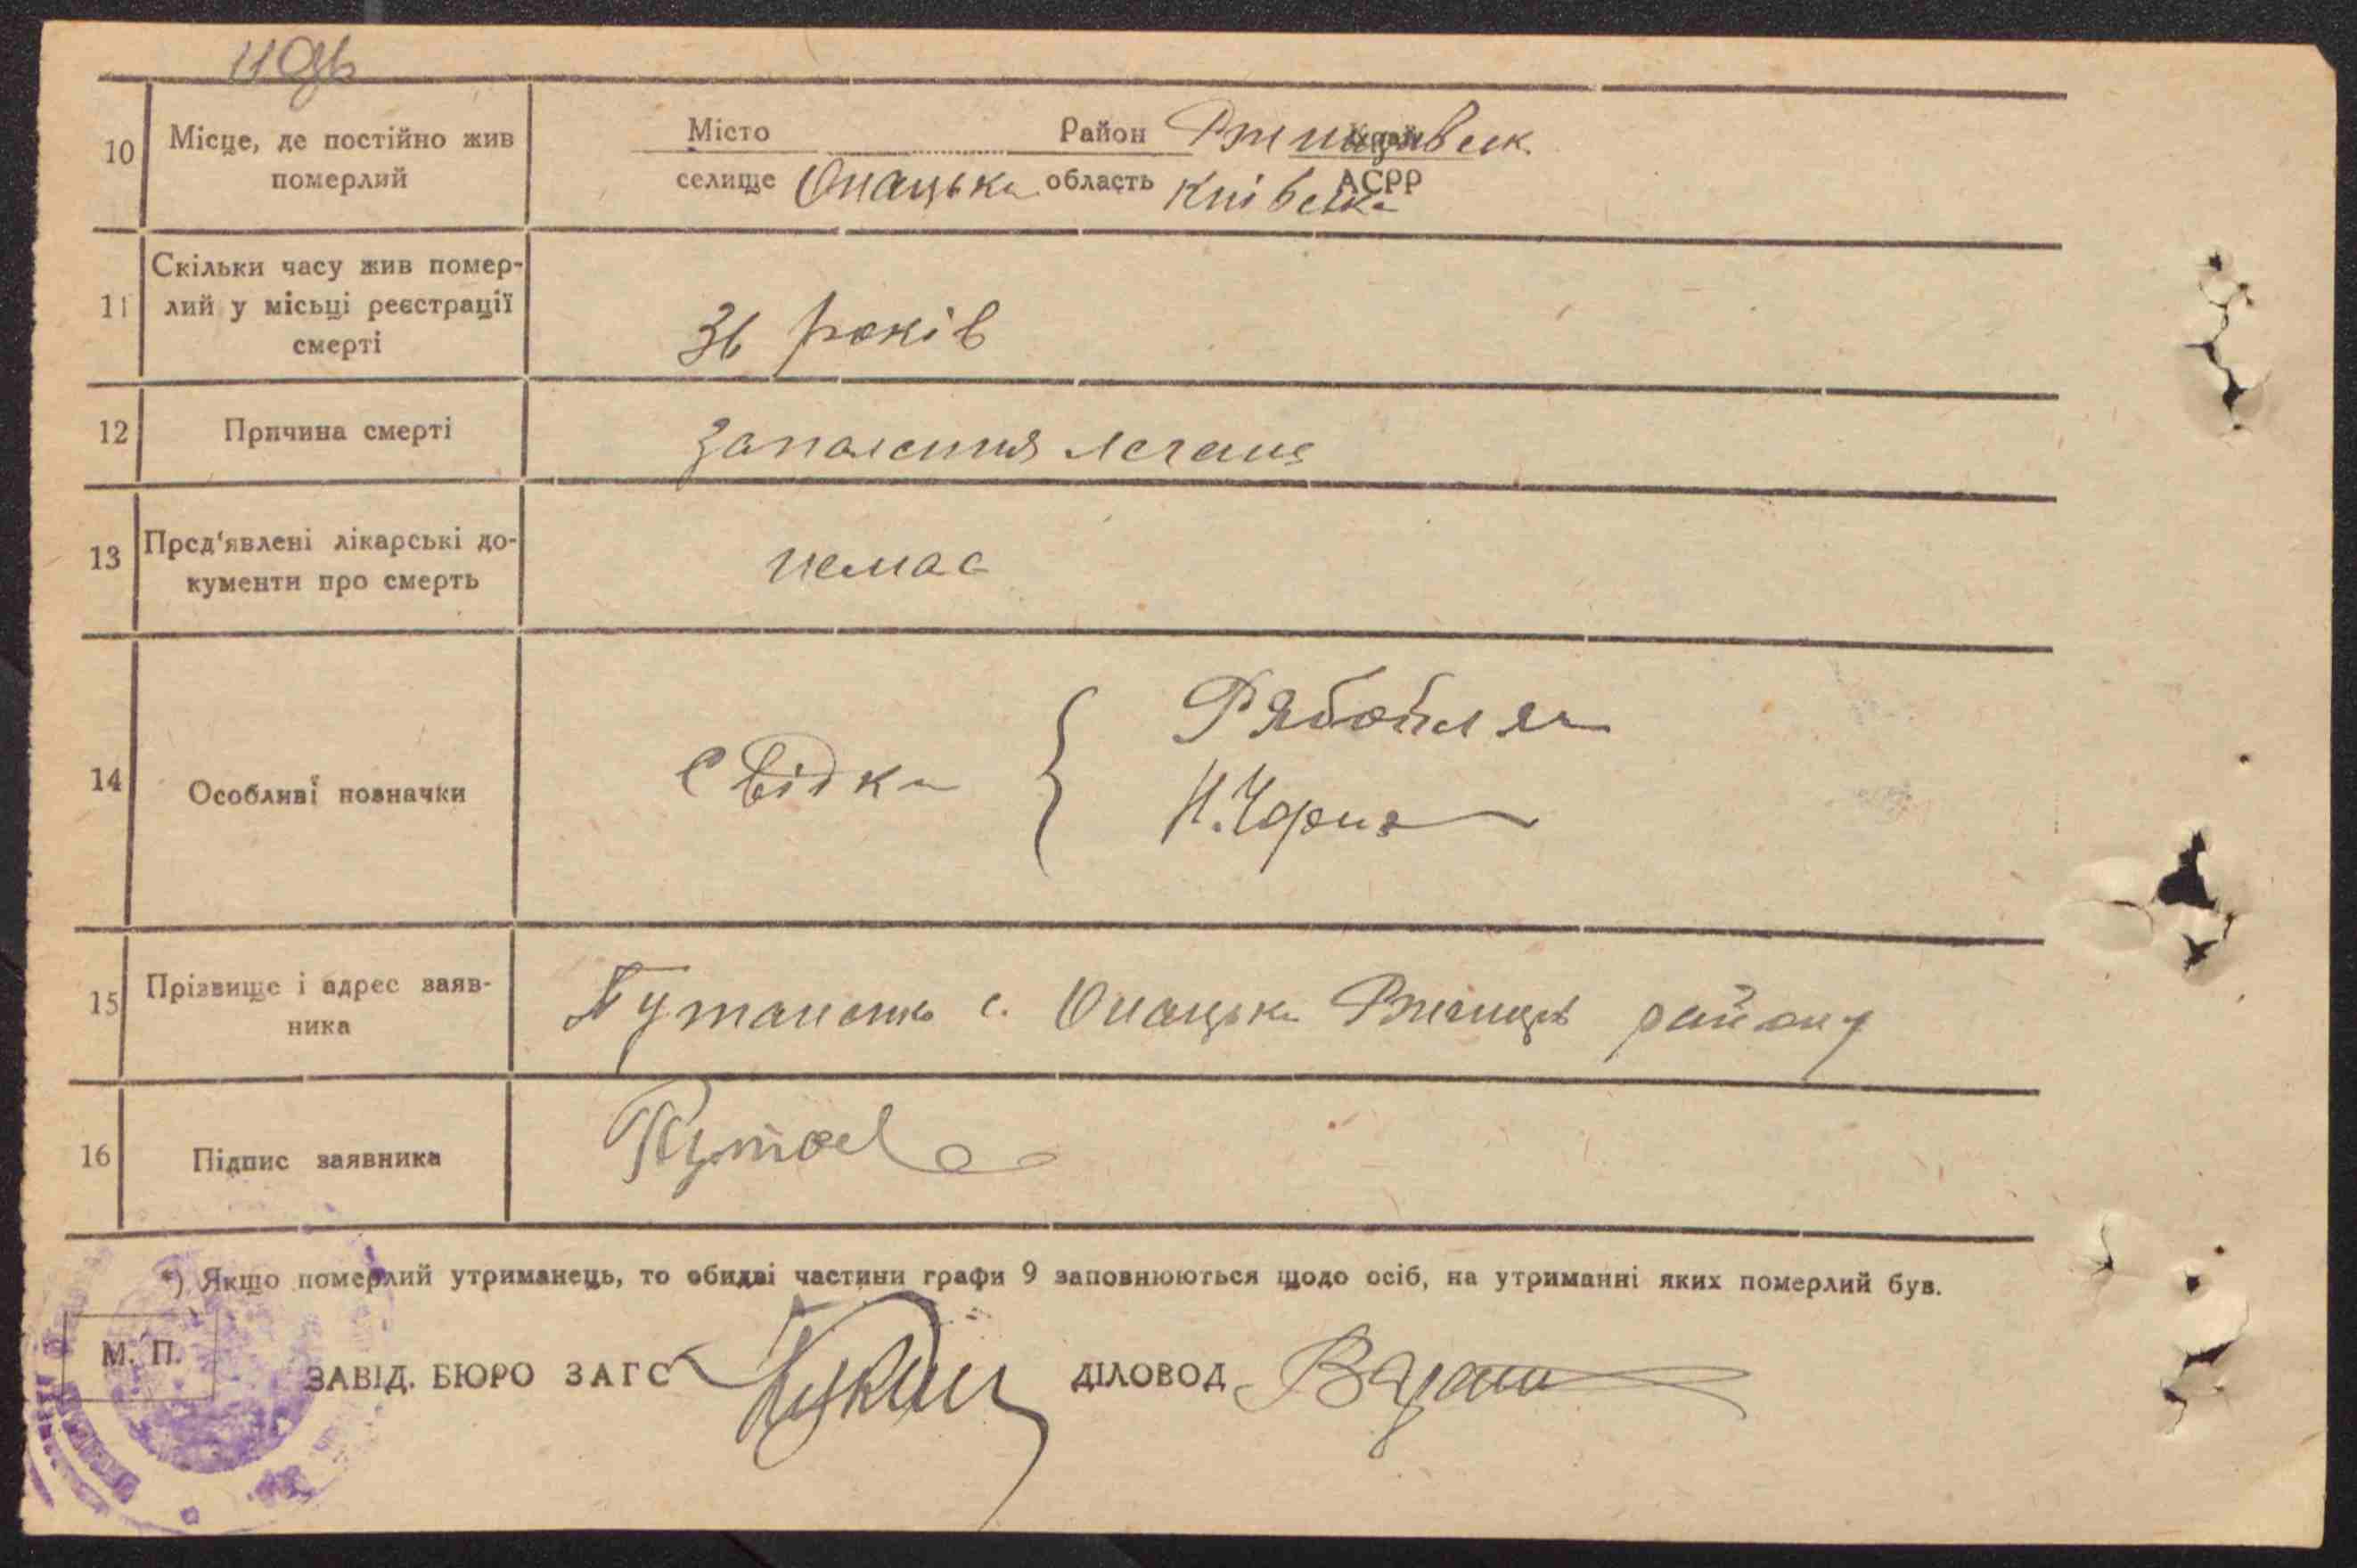 10 Місце, де постійно жив померлий
Місто Район Ржищівськ Край
селище Онацька область Київська АСРР
11 Скільки часу жив помер-
лий у місьці реєстрації
смерті
36 років
12 Причина смерті
запалення легень
13 Пред'явлені лікарські до-
кументи про смерть
немає
14 Особливі позначки
Свідки
Рябокляч
Н. Чорна
15 Прізвище і адрес заяв-
ника
Путаненко с. Онацька Ржищів району
16 Підпис заявника
*) Якщо померлий утриманець, то обидві частини графи 9 заповнюються щодо осіб, на утриманні яких померлий був.
М. П.
ЗАВІД. БЮРО ЗАГС ДІЛОВОД